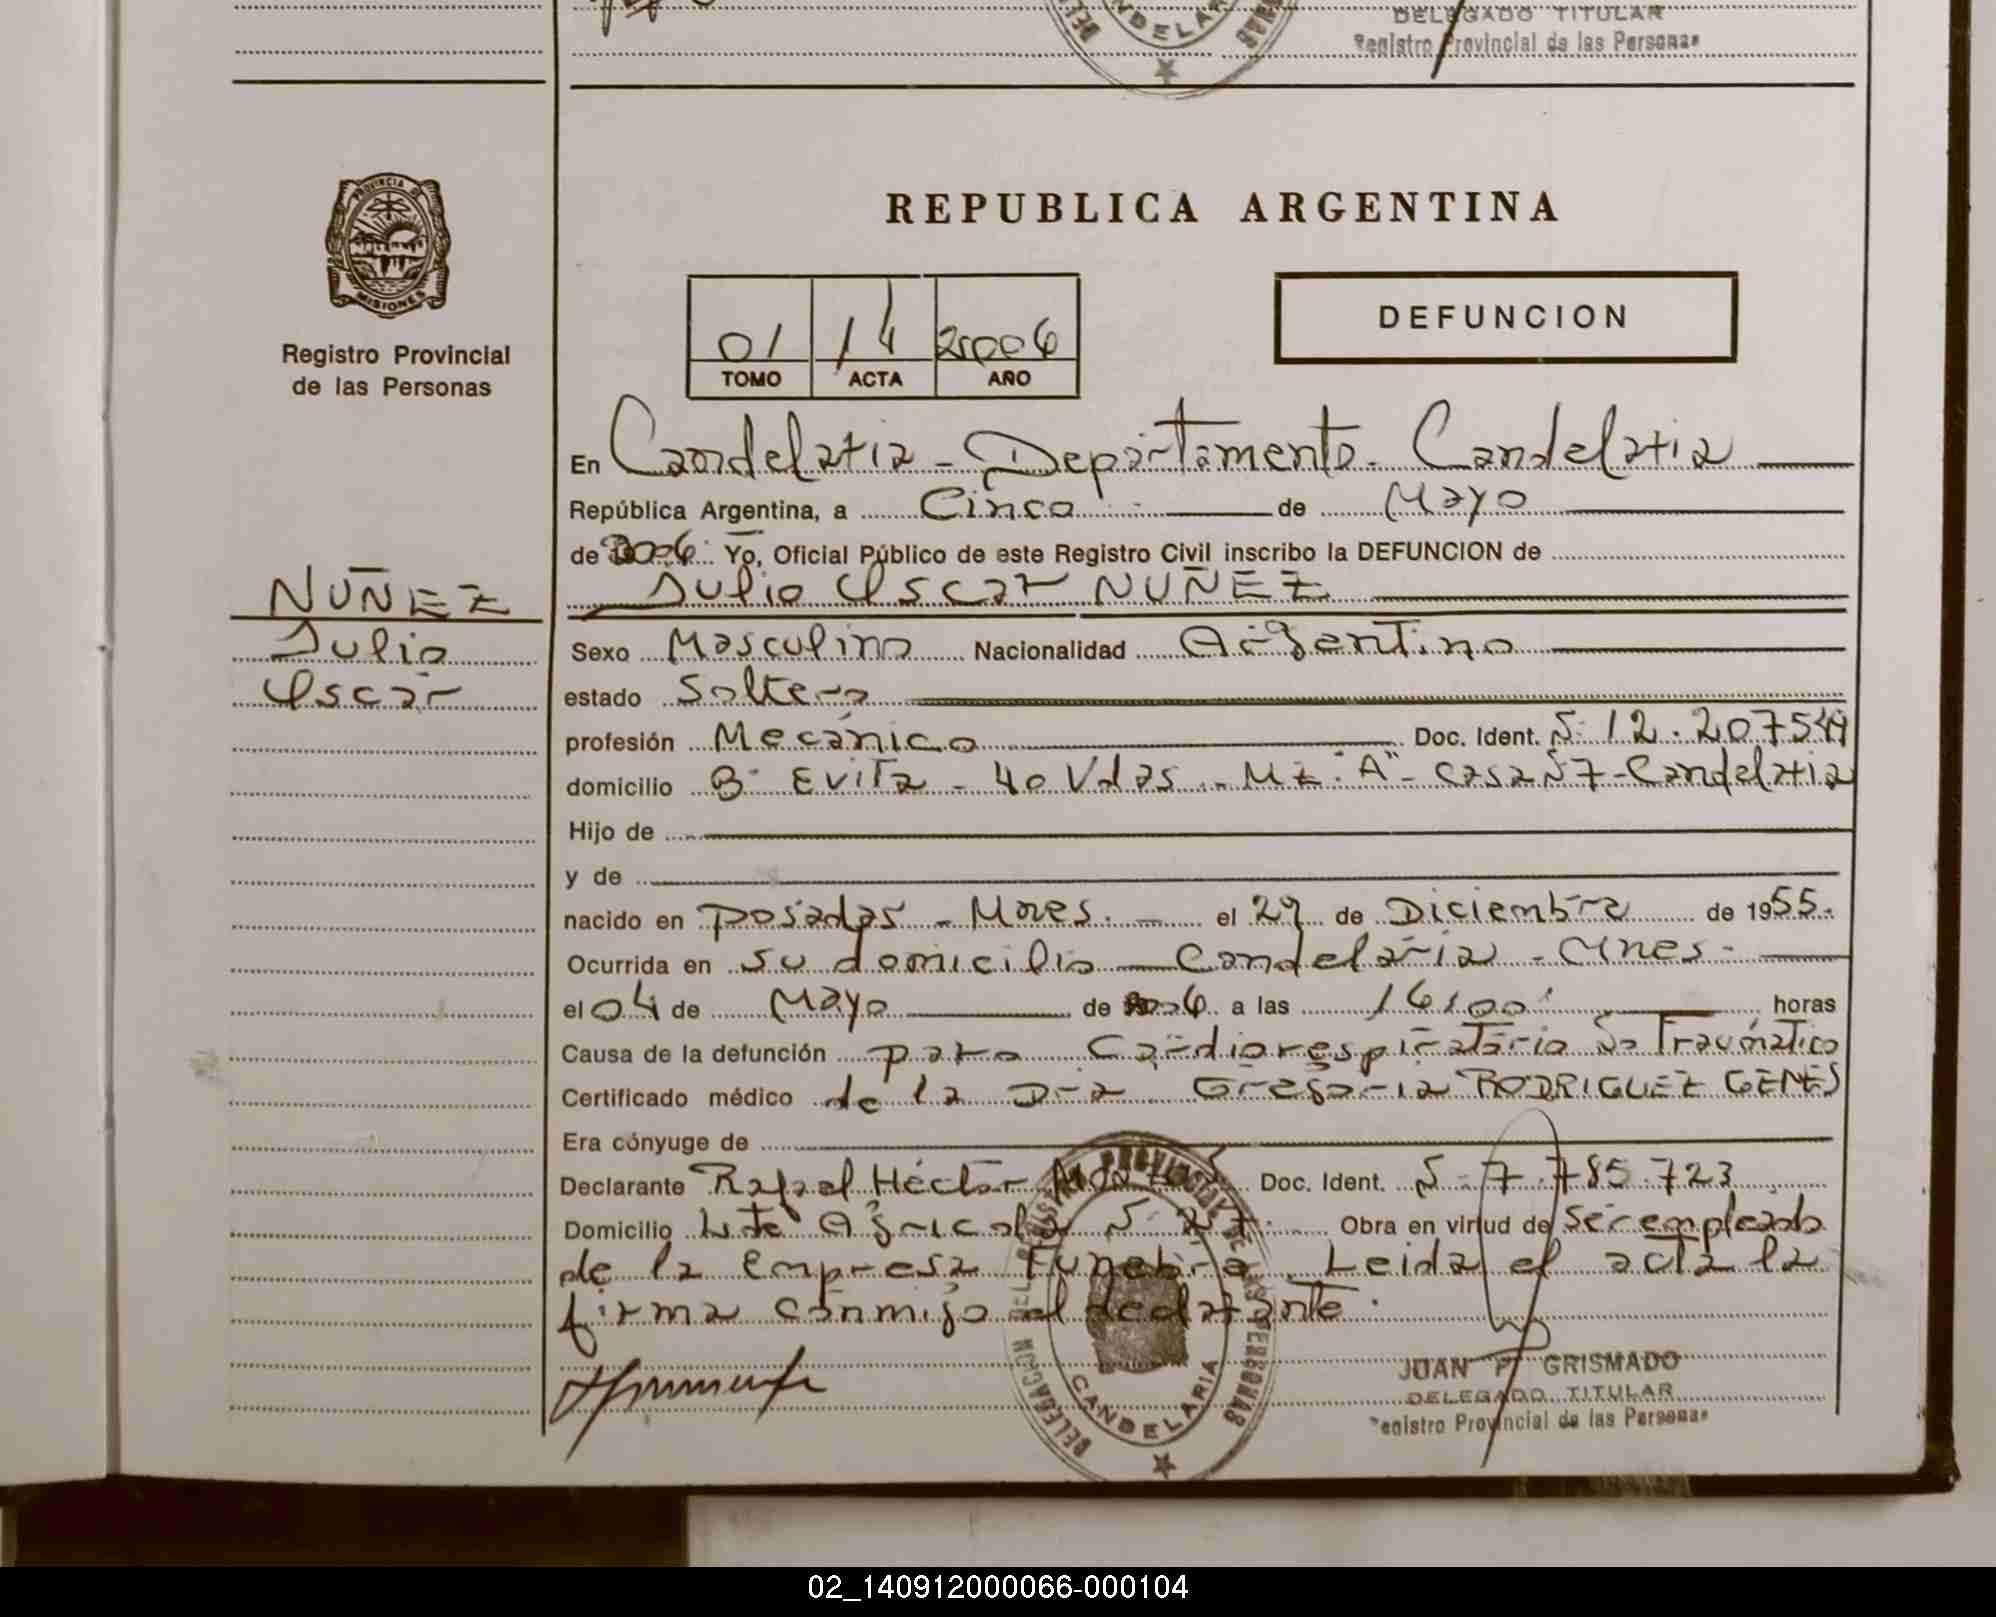 CANDELARIA
DELEGADO TITULAR
Registro Provincial de las Personas
PROVINCIA DE
MISIONES
Registro Provincial
de las Personas
REPUBLICA ARGENTINA
01 14 2006
TOMO ACTA AÑO
DEFUNCION
En Candelaria - Departamento - Candelaria
República Argentina, a Cinco de Mayo
de 2006. Yo, Oficial Público de este Registro Civil inscribo la DEFUNCION de
Julio Oscar NUÑEZ
NUÑEZ
Julio
Oscar
Sexo Masculino Nacionalidad Argentino
estado Soltero
profesión Mecánico Doc. Ident. Nº 12.207549
domicilio Bº Evita - 40 Vdas - Mz "A" - casa Nº 7 - Candelaria
Hijo de
y de
nacido en Posadas - Mnes. el 29 de Diciembre de 1955.
Ocurrida en su domicilio - Candelaria - Mnes.
el 04 de Mayo de 2006 a las 16,00 horas
Causa de la defunción paro Cardiorespiratorio No Traumático
Certificado médico de la Dra Gregoria RODRIGUEZ GENES
Era cónyuge de
Declarante Rafael Héctor Doc. Ident. Nº 7.785.723
Domicilio Lote Agricola Nº Obra en virtud de Ser empleado
de la Empresa Funebre. Leida el acta la
firma conmigo el declarante.
DELEGACION DEL REGISTRO PROVINCIAL DE LAS PERSONAS
CANDELARIA
JUAN P. GRISMADO
DELEGADO TITULAR
Registro Provincial de las Personas
02_140912000066-000104